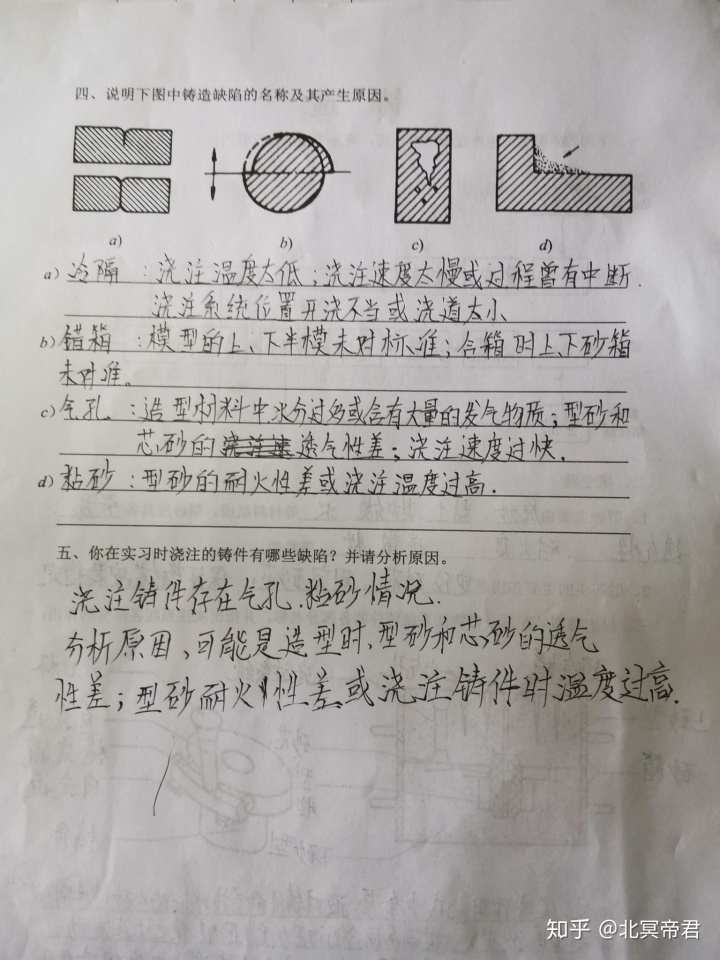 四、说明下图中铸造缺陷的名称及其产生原因。
a) b) c) d)
a) 冷隔：浇注温度太低；浇注速度太慢或过程曾有中断.
浇注系统位置开浇不当或浇道太小
b) 错箱：模型的上、下半模未对标准；合箱时上、下砂箱
未对准。
c) 气孔：造型材料中水分过多或含有大量的发气物质；型砂和
芯砂的浇注速透气性差；浇注速度过快.
d) 粘砂：型砂的耐火性差或浇注温度过高.
五、你在实习时浇注的铸件有哪些缺陷？并请分析原因。
浇注铸件存在气孔.粘砂情况.
分析原因、可能是造型时、型砂和芯砂的透气
性差；型砂耐火性差或浇注铸件时温度过高.
知乎 @北冥帝君